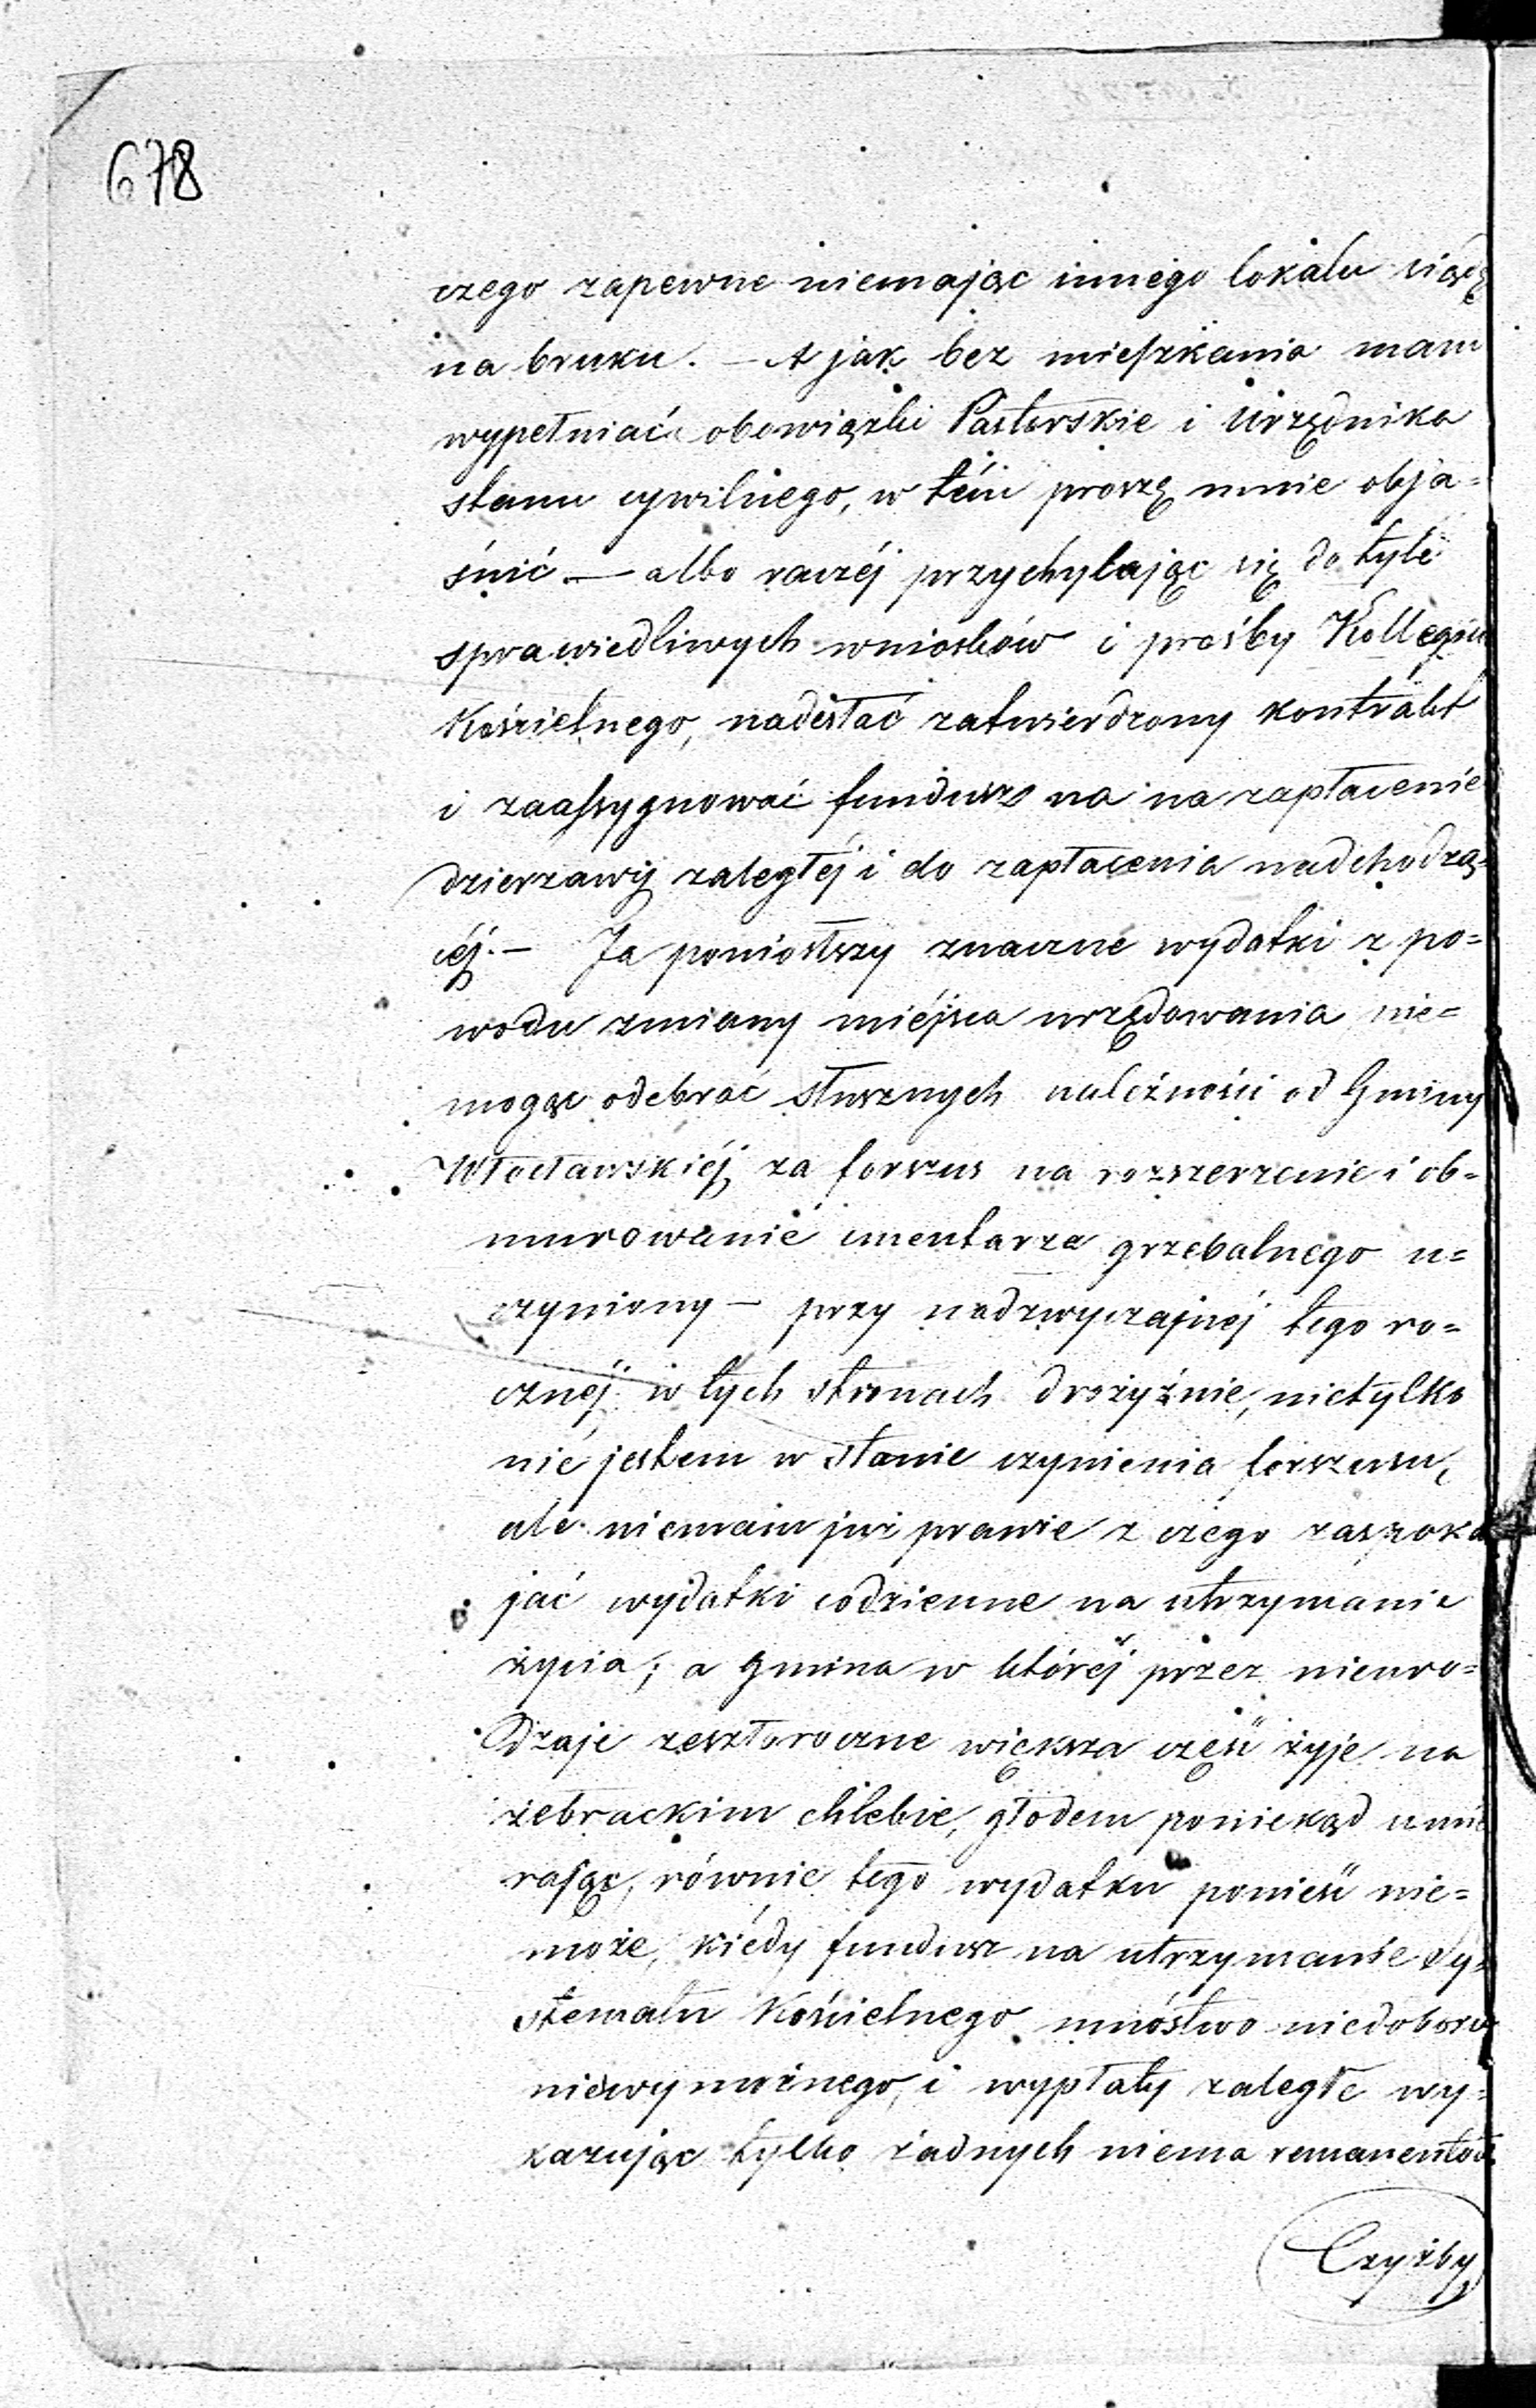 678
czego zapewne niemając innego lokalu siądę
na bruku. — A jak bez mieszkania mam
wypełniać obowiązki Pasterskie i Urzędnika
stanu cywilnego, w tém proszę mnie obja=
śnić — albo raczéj przychylając się do tyle
sprawiedliwych wniosków i prośby Kollegium
Kościelnego, nadesłać zatwierdzony kontrakt
i zaassygnować fundusz na na zapłacenie
dzierzawy zaległéj i do zapłacenia nadchodzą=
céj. — Ja poniosłszy znaczne wydatki z po=
wodu zmiany miéjsca urzędowania nie=
mogąc odebrać słusznych należności od Gminy
Włocławskiéj za forszus na rozszerzenie i ob=
murowanie cmentarza grzebalnego u=
czyniony — przy nadzwyczajnéj tego ro=
cznéj w tych stronach drożyźnie, nietylko
nie jestem w stanie czynienia forszusu,
ale niemam już prawie z czego zaspoka
jać wydatki codzienne na utrzymanie
życia; a gmina w któréj przez nieuro=
dzaje zeszłoroczne większa część żyje na
żebrackim chlebie, głodem poniekąd umie
rając, równie tego wydatku ponieść nie=
może, kiédy fundusz na utrzymanie Sy=
stematu Kościelnego mnóstwo niedoboru
niewymożnego, i wypłaty zaległe wy=
kazując tylko żadnych niema remanentów
Czyżby